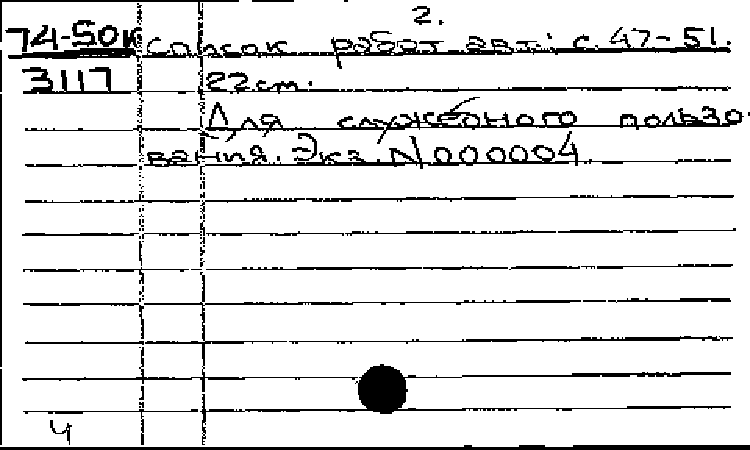 2.
74-50к Список работ авт.: с. 47-51.
3117 22 см.
Для служебного пользо-
вания. Экз. N 000004.
4